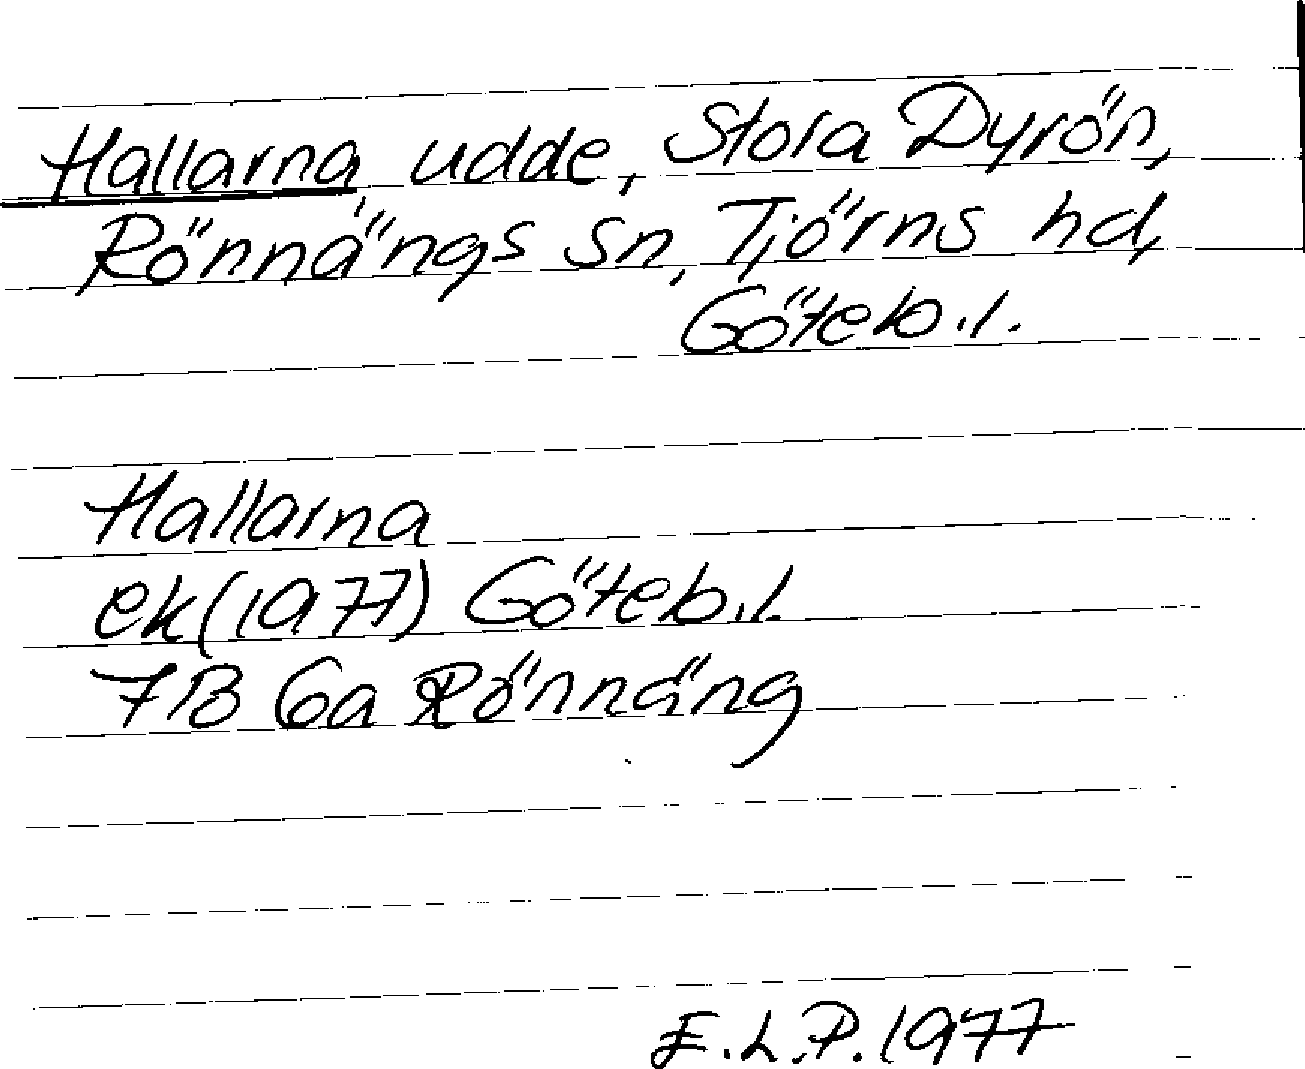 Hallarna udde, Stora Dyrön,
Rönnängs sn, Tjörns hd,
Göteb.l.
Hallarna
ek(1977) Göteb.l.
7B 6a Rönnäng
E.L.P. 1977